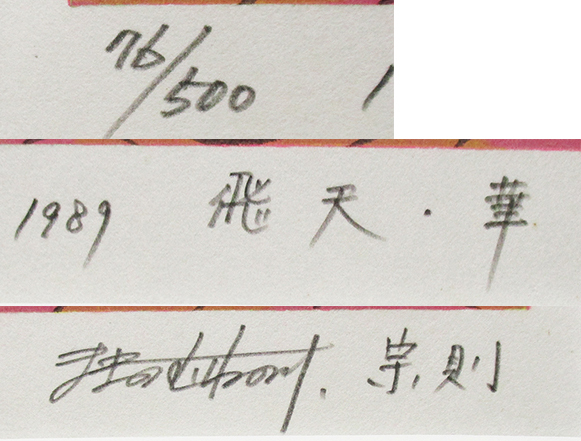 76/500
1989 飛天・華
宗則